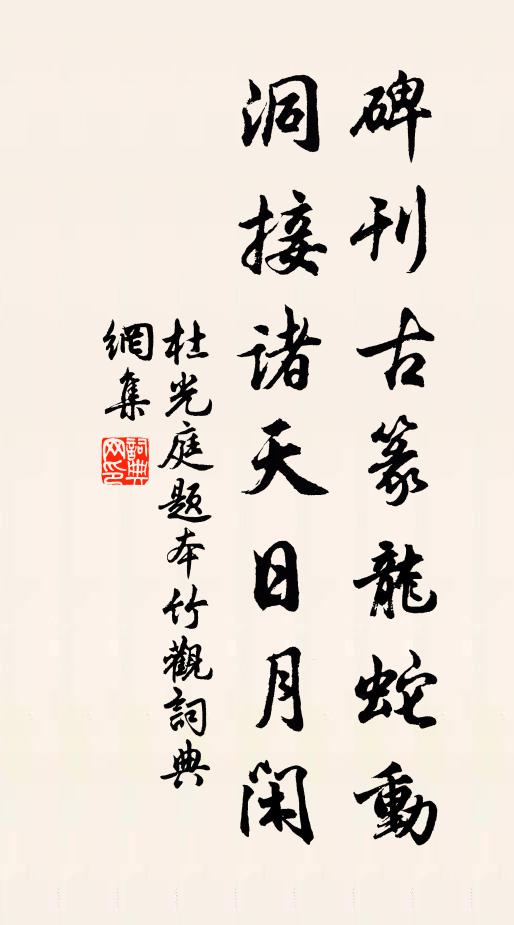 碑刊古篆龍蛇動
洞接诸天日月闲
杜光庭题本竹觀詞典
網集
詞典网印